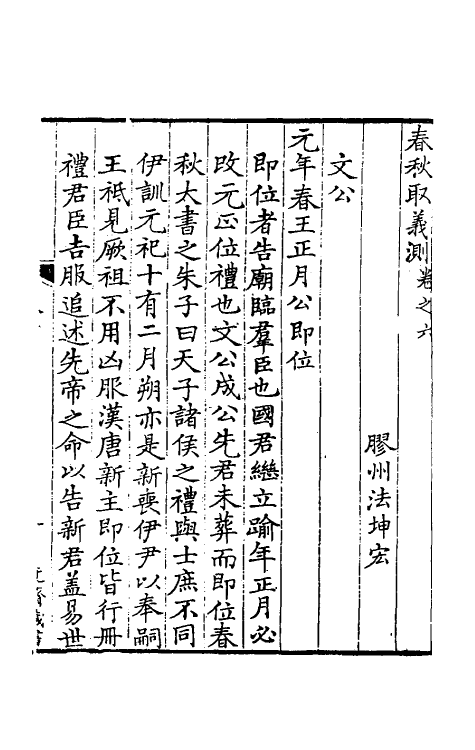 春秋取義測卷之六
膠州法坤宏
文公
元年春王正月公即位
即位者告廟臨羣臣也國君繼立踰年正月必
改元正位禮也文公成公先君未葬而即位春
秋大書之朱子曰天子諸侯之禮與士庶不同
伊訓元祀十有二月朔亦是新喪伊尹以奉嗣
王祗見厥祖不用凶服漢唐新主即位皆行冊
禮君臣吉服追述先帝之命以告新君蓋易世